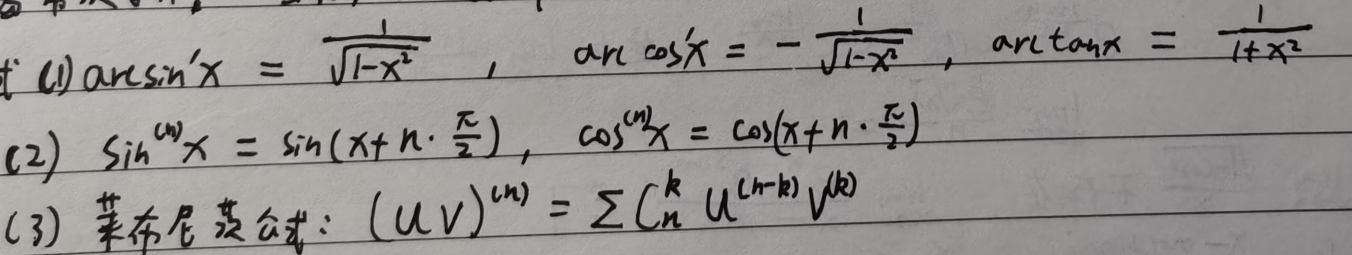 (1) arcsin′x = 1/√(1-x²) , arccos′x = -1/√(1-x²) , arctanx = 1/(1+x²)
(2) sin⁽ⁿ⁾x = sin(x+n·π/2) , cos⁽ⁿ⁾x = cos(x+n·π/2)
(3) 莱布尼茨公式: (uv)⁽ⁿ⁾ = Σ Cₙᵏ u⁽ⁿ⁻ᵏ⁾ v⁽ᵏ⁾